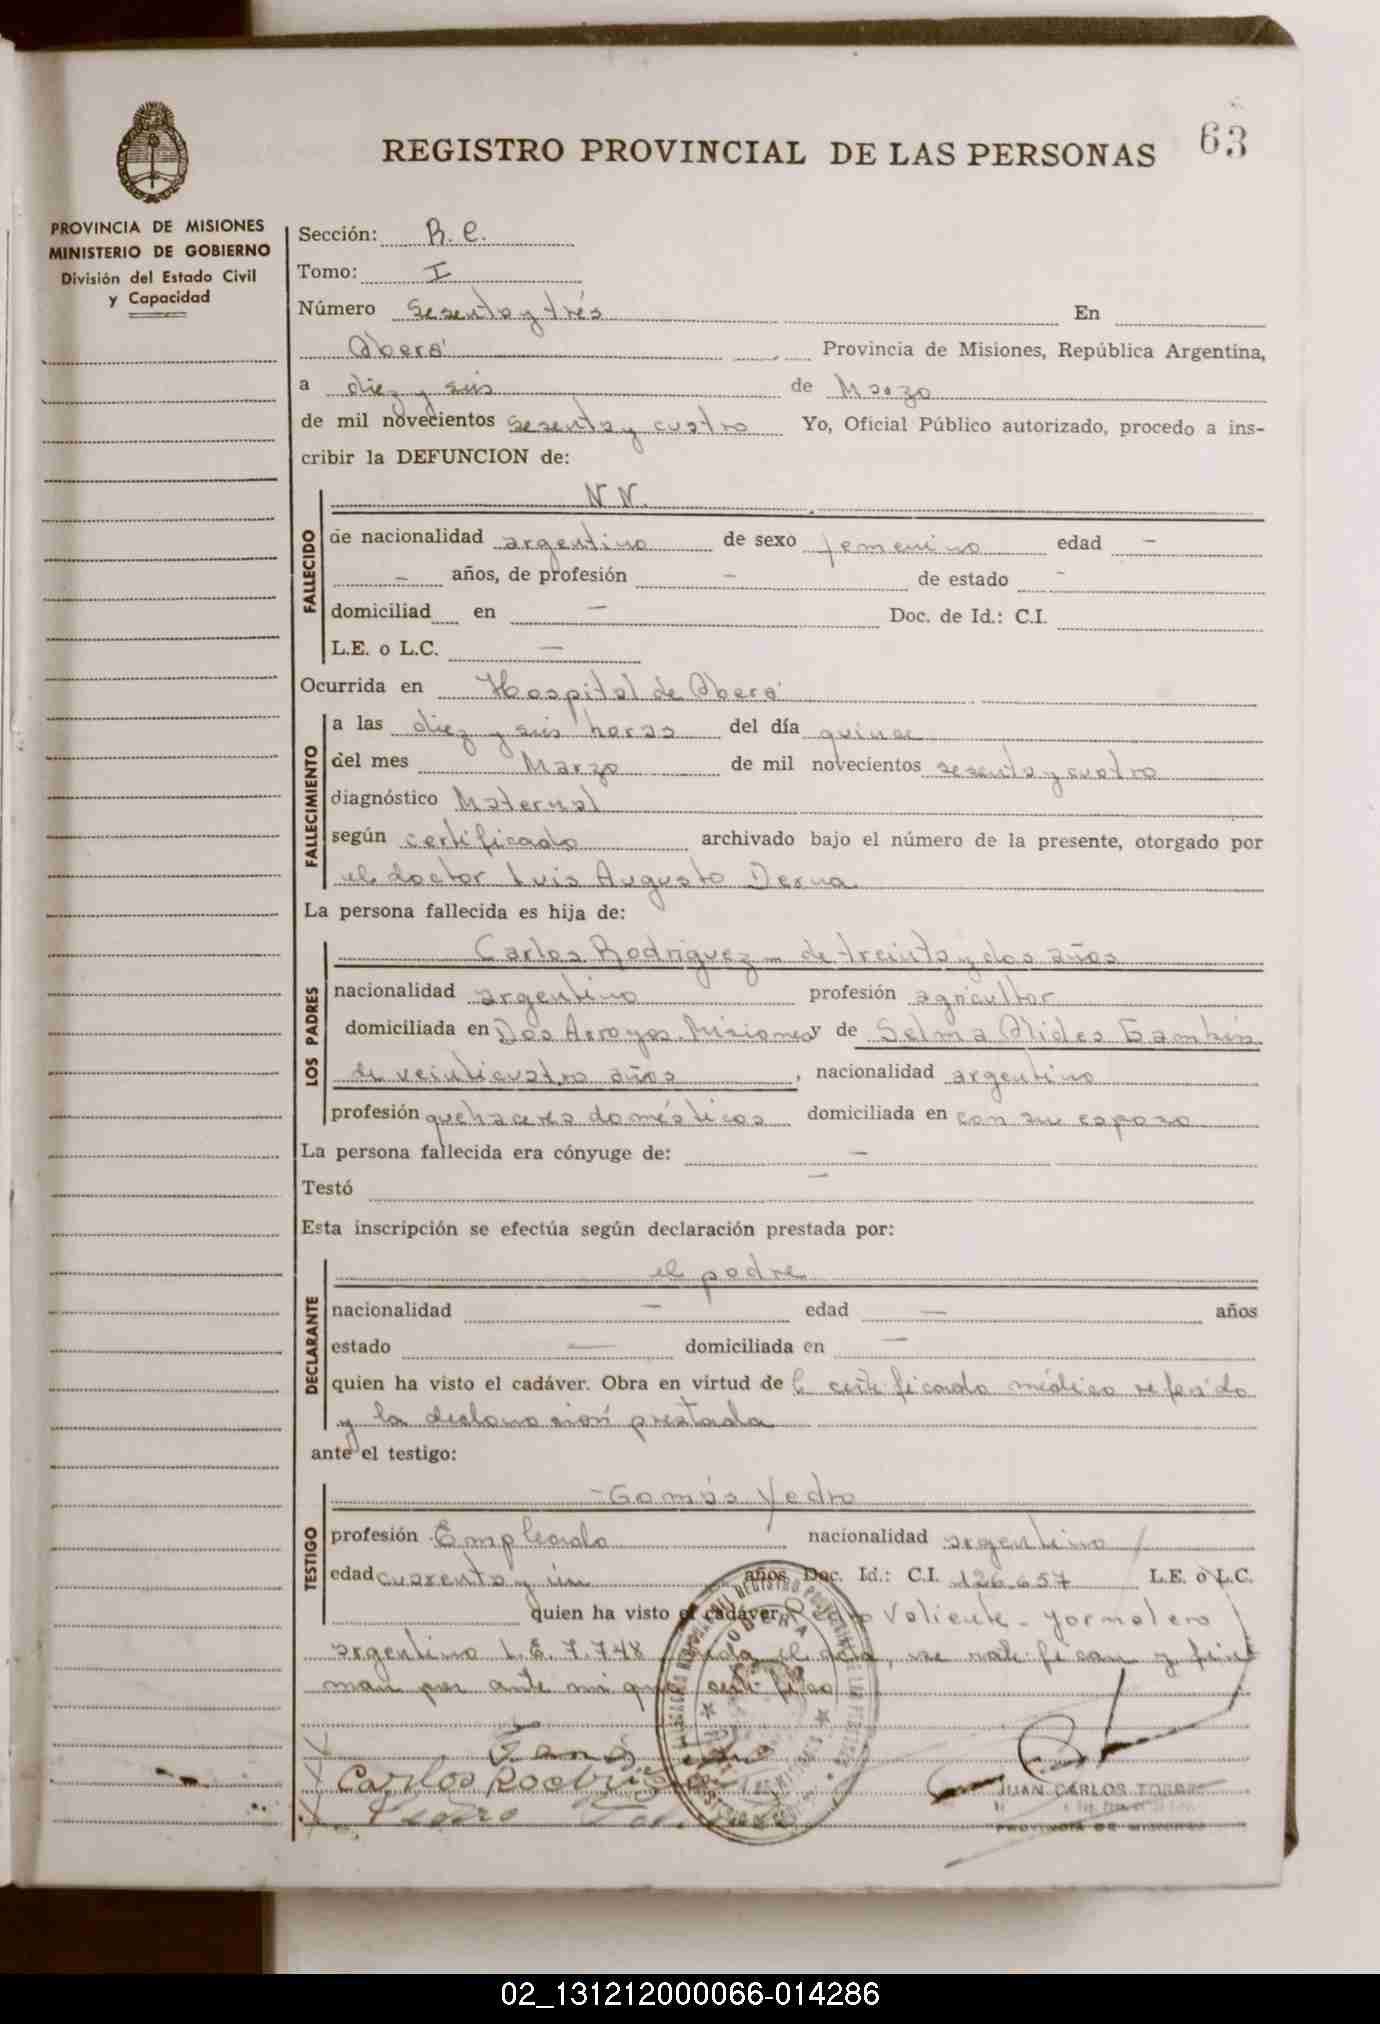 63
REGISTRO PROVINCIAL DE LAS PERSONAS
PROVINCIA DE MISIONES
MINISTERIO DE GOBIERNO
División del Estado Civil
y Capacidad
Sección: R. C.
Tomo: I
Número sesenta y trés En
Oberá Provincia de Misiones, República Argentina,
a diez y seis de Marzo
de mil novecientos sesenta y cuatro Yo, Oficial Público autorizado, procedo a ins-
cribir la DEFUNCION de:
FALLECIDO
N N.
de nacionalidad argentina de sexo femenino edad -
- años, de profesión - de estado -
domiciliad en - Doc. de Id.: C.I.
L.E. o L.C. -
Ocurrida en Hospital de Oberá
FALLECIMIENTO
a las diez y seis horas del día quince
del mes Marzo de mil novecientos sesenta y cuatro
diagnóstico Maternal
según certificado archivado bajo el número de la presente, otorgado por
el doctor Luis Augusto
La persona fallecida es hija de:
LOS PADRES
Carlos Rodriguez - de treinta y dos años
nacionalidad argentino profesión agricultor
domiciliada en Dos Arroyos. Misiones y de Selma
de veinticuatro años, nacionalidad argentina
profesión quehaceres domésticos domiciliada en con su esposo
La persona fallecida era cónyuge de: -
Testó -
Esta inscripción se efectúa según declaración prestada por:
DECLARANTE
el padre
nacionalidad - edad - años
estado - domiciliada en -
quien ha visto el cadáver. Obra en virtud de l certificado médico referido
y la declaración prestada
ante el testigo:
TESTIGO
profesión Empleado nacionalidad argentino
edad cuarenta y un años Doc. Id.: C.I. 126.657 L.E. o L.C.
quien ha visto el cadáver Pedro Valiente - jornalero
argentino L.E. 7.748 el acta, se ratifican y fir
man por ante mi que certifico
Carlos Rodriguez
Pedro
OBERA
JUAN CARLOS TORRES
PROVINCIA DE MISIONES
02_131212000066-014286